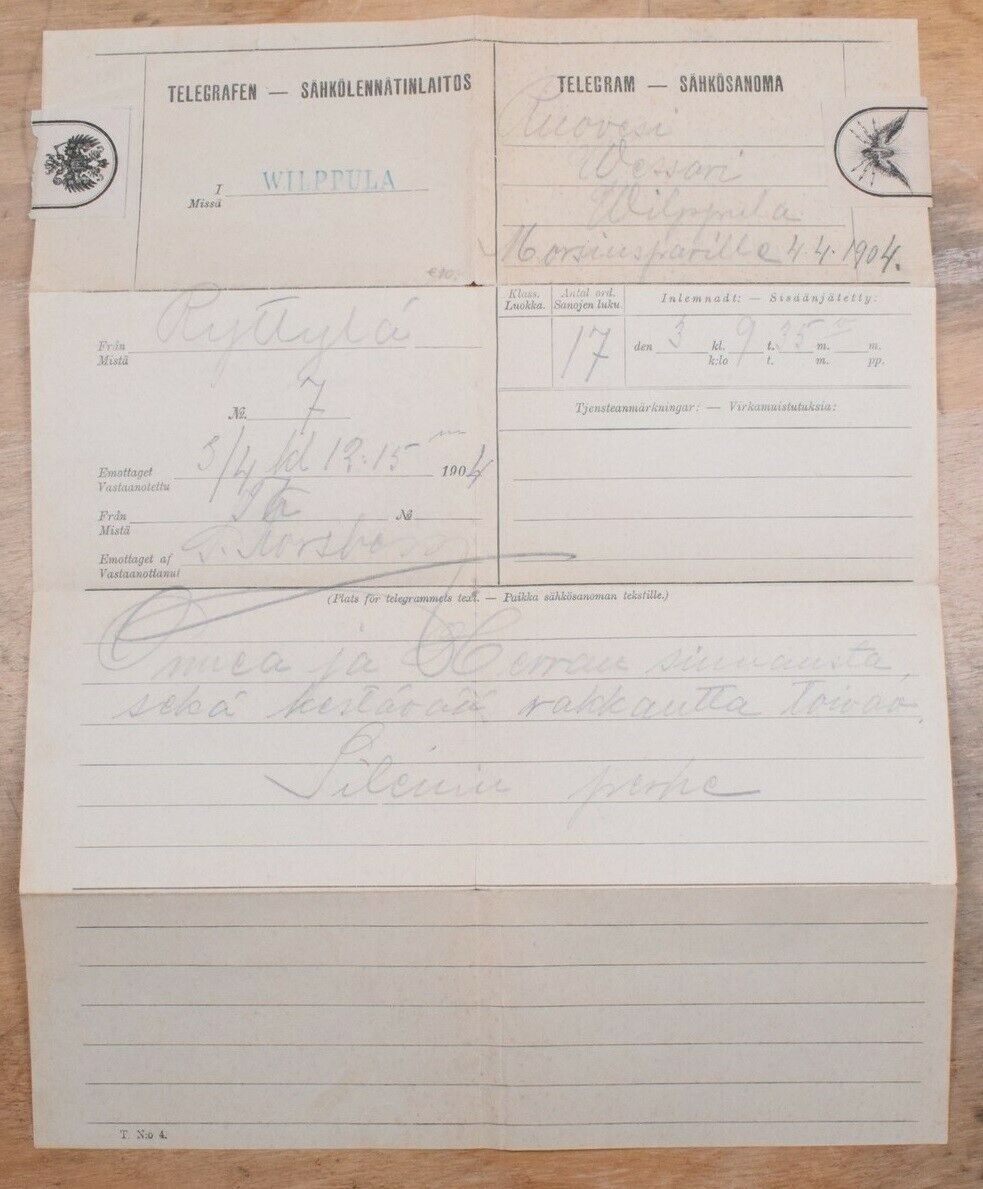 TELEGRAFEN — SÄHKÖLENNÄTINLAITOS
I
Missä
WILPPULA
TELEGRAM — SÄHKÖSANOMA
Ruovesi
Wessari
Wilppula
Morsiusparille 4.4.1904.
Från
Mistä
Ryttylä
№. 7
Emottaget
Vastaanotettu
3/4 kl 12.15 1904
Från
Mistä
№
Emottaget af
Vastaanottanut
Klass.
Luokka.
Antal ord.
Sanojen luku.
17
Inlemnadt: — Sisäänjätetty:
den 3 kl. 9 t. 35 m. m.
k:lo t. m. pp.
Tjensteanmärkningar: — Virkamuistutuksia:
(Plats för telegrammets text. — Paikka sähkösanoman tekstille.)
Onnea ja Herran siunausta
sekä kestävää rakkautta toivoo
perhe
T. N:o 4.